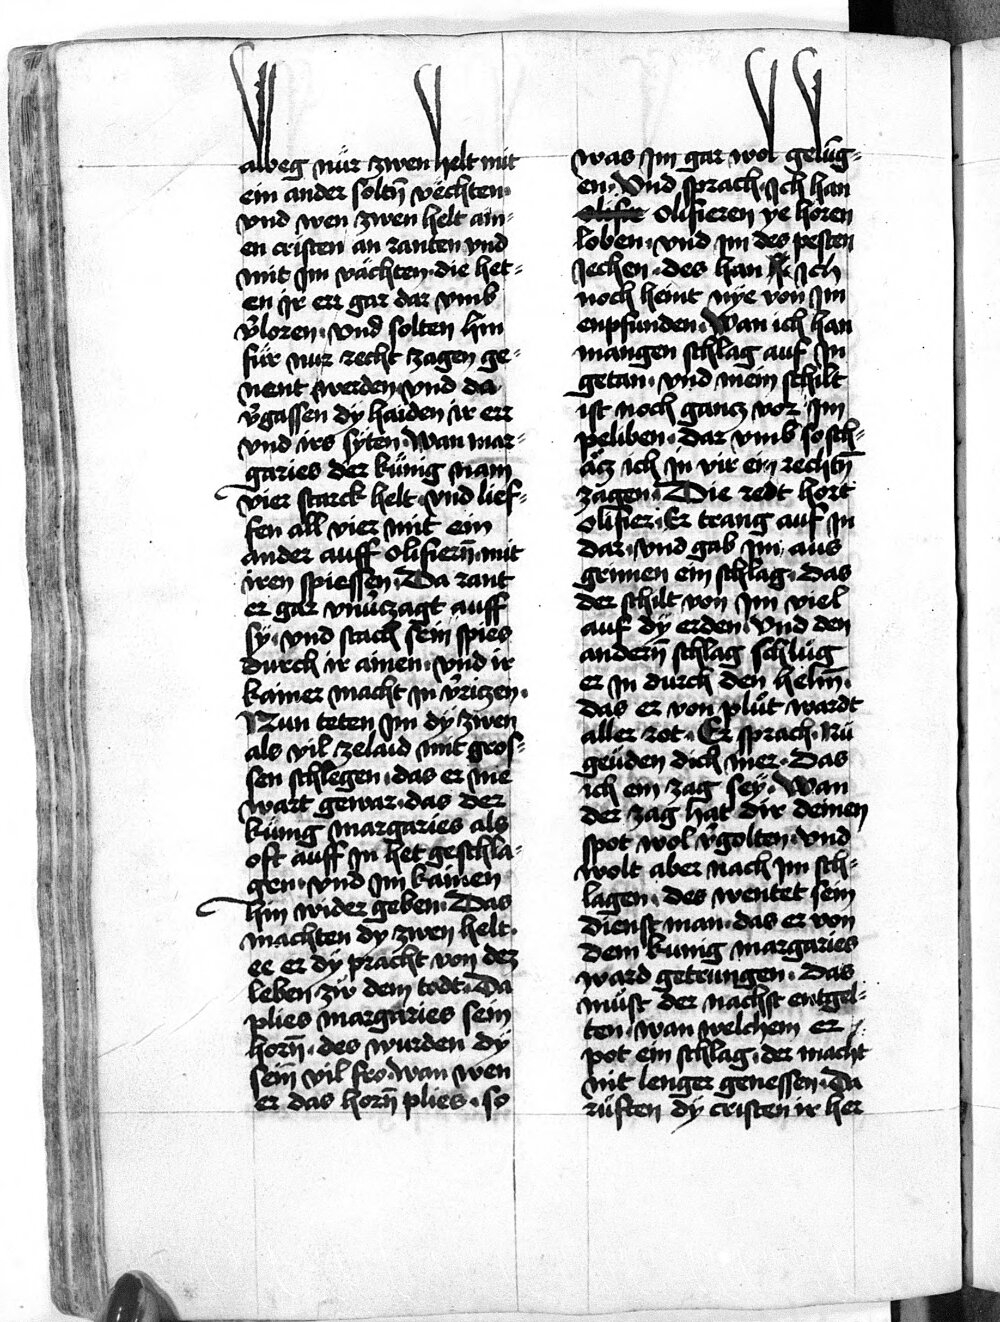 alweg nür zwen helt mit
ein ander soltn̄ vëchten·
vnd wen zwen helt ain=
en cristen an ranten vnd
mit jm vächten· die het=
en jr err gar dar vmb
v̄loren· vnd solten hin
für nur recht zagen ge=
nent werden vnd da
v̄gassen dy haiden ir err
vnd irs syten· Wan mar=
garies der künig nam
vier starck helt· vnd lief=
fen all vier mit ein
ander auff olifiern̄· mit
iren spiessen· Da rant
er gar vnv̄zagt auff
sy· vnd stach sein spies
durch ir ainen· vnd ir
kainer macht in v̄riczen·
Nun teten jm dy zwen
als vil zelaid mit gros=
sen schlegen· das er nie
wart gewar· das der
künig margaries als
oft auff jn het geschla=
gen· vnd jm kainen
hin wider geben· Das
machten dy zwen helt·
ee er dy pracht von dez
leben zw dem todt· Da
plies margaries sein
horn̄· des wurden dy
sein vil fro· wan wen
er das horn̄ plies· so
was jm gar wol gelüg=
en· Vnd sprach· Jch han
olifieren ye horen
loben· vnd jm des pesten
jechen· des han jch
noch heint nye von jm
enpfunden· Wan ich han
mangen schlag auf jn
getan· vnd mein schilt
ist noch gancz vor jm
peliben· Dar vmb so sch=
äcz ich in vir ein rechtn̄
zagen· Die redt hort
olifier· Er trang auf jn
dar· vnd gab jm aus
grimen ein schlag· das
der schilt von jm viel
auf dy erden· Vnd den
andern̄ schlag schlüg
er jn durch den helm̄·
das er von plüt wardt
aller rot· Er sprach· Nu
geüden dich mer· Das
ich ein zag sey· Wan
der zag hat dir deinen
spot wol v̄golten· Vnd
wolt aber nach jm sch=
lagen· des wentet sein
dienst man· das er von
dem künig margaries
ward getrungen· Das
müst der nachst entgel=
ten· wan welchem er
pot ein schlag· der macht
nit lenger genessen· Da
rüften dy cristen ir her